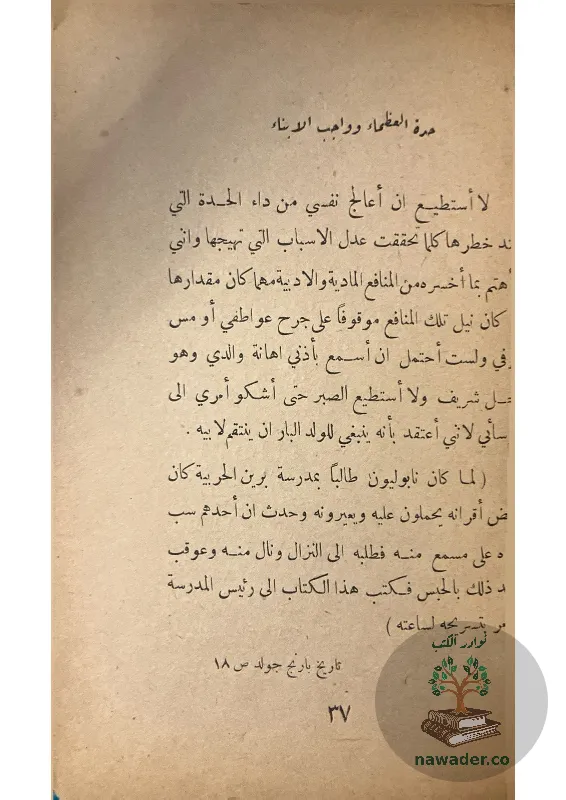 حدة العظماء وواجب الابناء
لا أستطيع ان أعالج نفسي من داء الحدة التي
خطرها كلما تحققت عدل الاسباب التي تهيجها وانني
أهتم بما أخسره من المنافع المادية والادبية مهما كان مقدارها
كان نيل تلك المنافع موقوفاً على جرح عواطفي أو مس
ولست أحتمل ان أسمع بأذني اهانة والدي وهو
شريف ولا أستطيع الصبر حتى أشكو أمري الى
لانني أعتقد بأنه ينبغي للولد البار ان ينتقم لابيه .
( لما كان نابوليون طالباً بمدرسة برين الحربية كان
أقرانه يحملون عليه ويعيرونه وحدث ان أحدهم سب
على مسمع منه فطلبه الى النزال ونال منه وعوقب
ذلك بالحبس فكتب هذا الكتاب الى رئيس المدرسة
لساعته )
تاريخ بارنج جولد ص ١٨
٣٧
نوادر الكتب
nawader.co